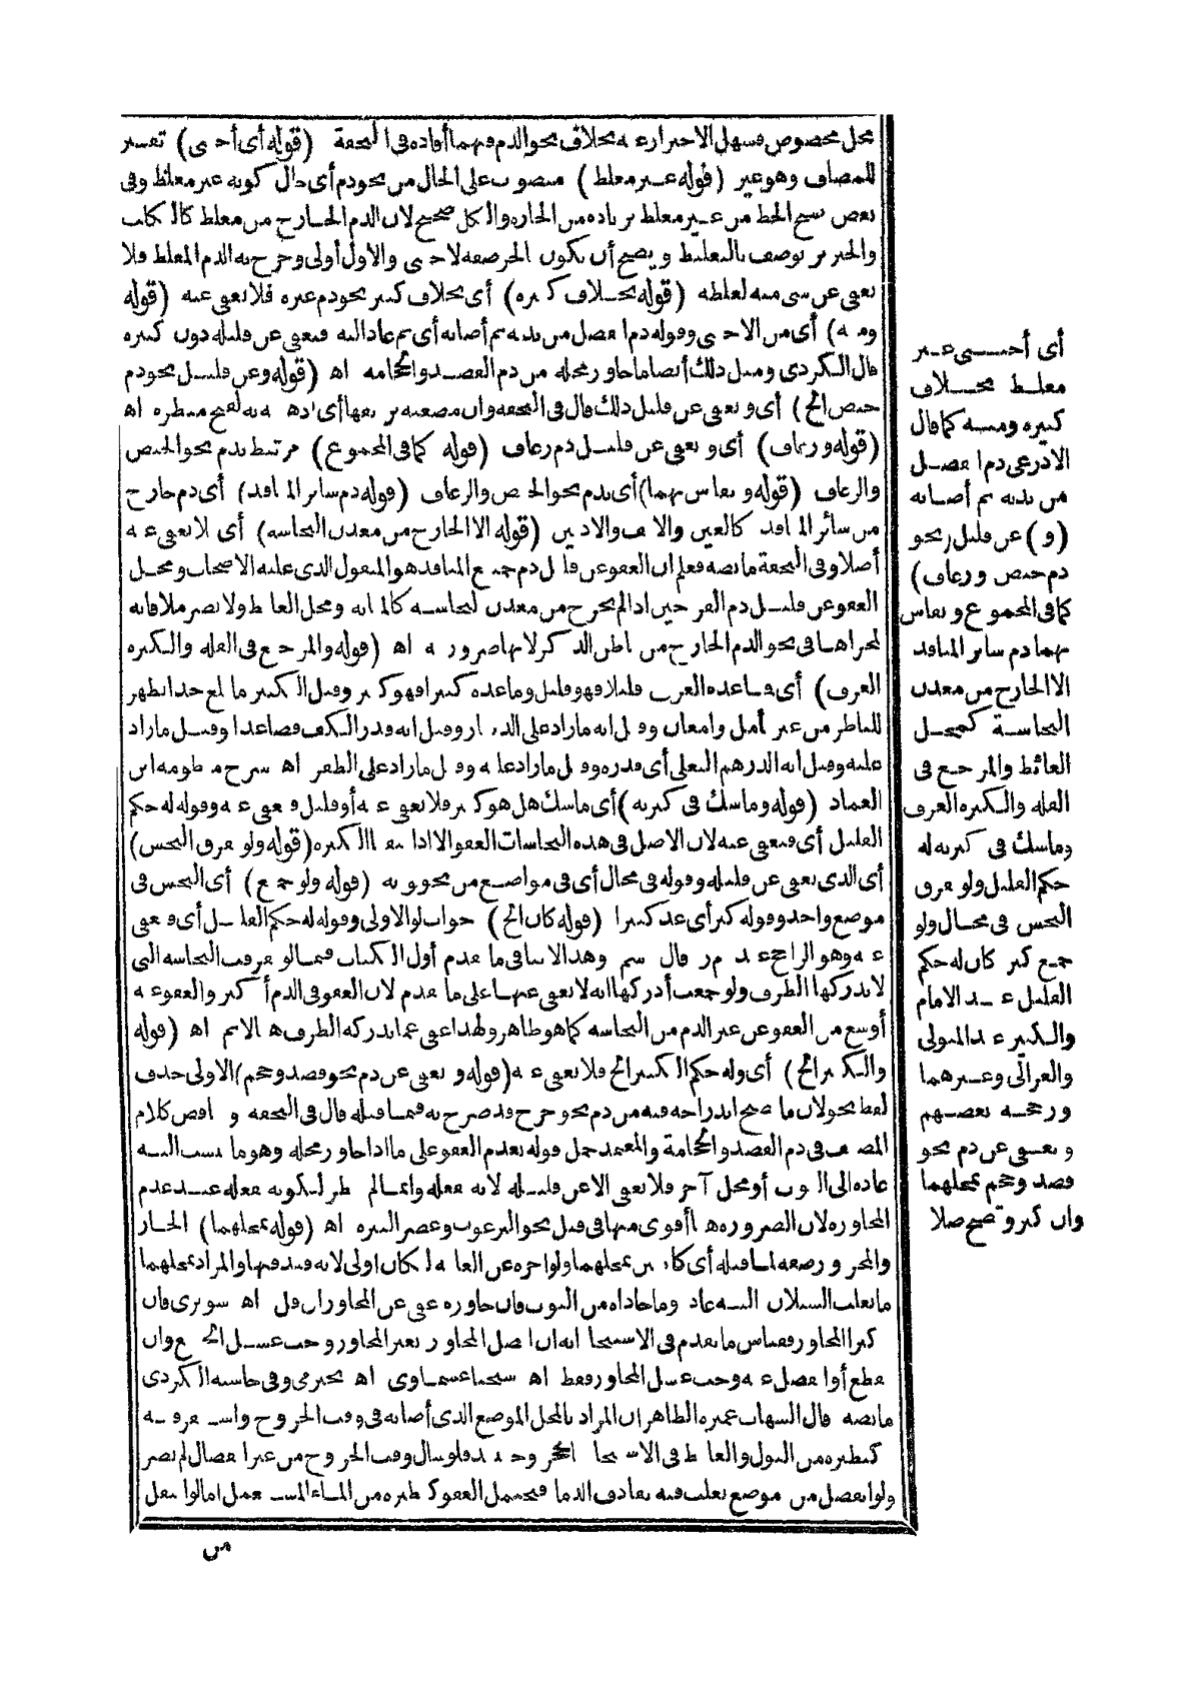 محل مخصوص فسهل الاحتراز عنه بخلاف نحو الدم فيهما أفاده فى التحفة (قوله أى أجنبى) تفسير
للمضاف وهو غير (قوله غير مغلظ) منصوب على الحال من نحو دم أى حال كونه غير مغلظ وفى
بعض نسخ الخط من غير مغلظ بزيادة من الجارة والكل صحيح لان الدم الخارج من مغلظ كالكلب
والخنزير يوصف بالتغليظ ويصح أن يكون الجر صفة لاجنبى والاول أولى وخرج به الدم المغلظ فلا
يعفى عن شىء منه لغلظه (قوله بخلاف كثيره) أى بخلاف كثير نحو دم غيره فلا يعفى عنه (قوله
ومنه) أى من الاجنبى وقوله دم انفصل من بدنه ثم أصابه أى ثم عاد اليه فيعفى عن قليله دون كثيره
قال الكردى ومثل ذلك أيضا ما جاوز محله من دم الفصد والحجامة اه (قوله وعن قليل نحو دم
حيض الخ) أى ويعفى عن قليل ذلك قال فى التحفة وان مصعته بريقها أى اذهبته لقبح منظره اه
(قوله ورعاف) أى ويعفى عن قليل دم رعاف (قوله كما فى المجموع) مرتبط بدم نحو الحيض
والرعاف (قوله ويقاس بهما) أى بدم نحو الحيض والرعاف (قوله دم سائر المنافذ) أى دم خارج
من سائر المنافذ كالعين والانف والاذنين (قوله الا الخارج من معدن النجاسة) أى لا يعفى عنه
أصلا وفى التحفة ما نصه فعلم ان العفو عن قليل دم جميع المنافذ هو المنقول الذى عليه الاصحاب ومحل
العفو عن قليل دم الفرجين اذا لم يخرج من معدن النجاسة كالمثانة ومحل الغائط ولا يضر ملاقاته
لمجراها فى نحو الدم الخارج من باطن الذكر لانها ضرورية اه (قوله والمرجع فى القلة والكثرة
العرف) أى فما عده العرف قليلا فهو قليل وما عده كثيرا فهو كثير وقيل الكثير ما بلغ حدا يظهر
للناظر من غير تأمل وامعان وقيل انه ما زاد على الدينار وقيل انه قدر الكف فصاعدا وقيل ما زاد
عليه وقيل انه الدرهم البغلى أى قدره وقيل ما زاد عليه وقيل ما زاد على الظفر اه شرح منظومة ابن
العماد (قوله وما شك فى كثرته) أى ما شك هل هو كثير فلا يعفى عنه أو قليل فيعفى عنه وقوله له حكم
القليل أى فيعفى عنه لان الاصل فى هذه النجاسات العفو الا اذا تيقنا الكثرة (قوله ولو تفرق النجس)
أى الذى يعفى عن قليله وقوله فى محال أى فى مواضع من نحو ثوبه (قوله ولو جمع) أى النجس فى
موضع واحد وقوله كثر أى عد كثيرا (قوله كان الخ) جواب لو الاولى وقوله له حكم القليل أى فيعفى
عنه وهو الراجح عند م ر قال سم وهذا لا ينافى ما تقدم أول الكتاب فيما لو تفرقت النجاسة التى
لا يدركها الطرف ولو جمعت أدركها انه لا يعفى عنها على ما تقدم لان العفو فى الدم أكثر والعفو عنه
أوسع من العفو عن غير الدم من النجاسة كما هو ظاهر ولهذا عفى عما يدركه الطرف هنا لا ثم اه (قوله
والكثير الخ) أى وله حكم الكثير الخ فلا يعفى عنه (قوله ويعفى عن دم نحو فصد وحجم) الاولى حذف
لفظ نحو لان ما يصح اندراجه فيه من دم نحو جرح قد صرح به فيما قبله قال فى التحفة وتناقض كلام
المصنف فى دم الفصد والحجامة والمعتمد حمل قوله بعدم العفو على ما اذا جاوز محله وهو ما ينسب اليه
عادة الى الثوب أو محل آخر فلا يعفى الا عن قليله لانه بفعله وانما لم ينظر لكونه بفعله عند عدم
المجاوزة لان الضرورة هنا أقوى منها فى قتل نحو البرغوث وعصر البثرة اه (قوله بمحلهما) الجار
والمجرور صفة لما قبله أى كائنين بمحلهما ولو اخره عن الغاية لكان اولى لانه قيد فيها والمراد بمحلهما
ما يغلب السيلان اليه عادة وما حاذاه من الثوب فان جاوزه عفى عن المجاوز ان قل اه شوبرى فان
كثر المجاوز فقياس ما تقدم فى الاستنجاء انه ان اتصل المجاوز بغير المجاوز وجب غسل الجميع وان
تقطع أو انفصل عنه وجب غسل المجاوز فقط اه شيخنا عشماوى اه بجيرمى وفى حاشية الكردى
ما نصه قال الشهاب عميرة الظاهر ان المراد بالمحل الموضع الذى أصابه فى وقت الخروج واستقر فيه
كنظيره من البول والغائط فى الاستنجاء بالحجر وحينئذ فلو سال وقت الخروج من غير انفصال لم يضر
ولو انفصل من موضع يغلب فيه تقاذف الدماء فيحتمل العفو كنظيره من الماء المستعمل اما لو انتقل
من
أى أجنبى غير
مغلظ بخلاف
كثيره ومنه كما قال
الاذرعى دم انفصل
من بدنه ثم أصابه
(و) عن قليل (نحو
دم حيض ورعاف)
كما فى المجموع ويقاس
بهما دم سائر المنافذ
الا الخارج من معدن
النجاسة كمحل
الغائط والمرجع فى
القلة والكثرة العرف
وما شك فى كثرته له
حكم القليل ولو تفرق
النجس فى محال ولو
جمع كثر كان له حكم
القليل عند الامام
والكثير عند المتولى
والغزالى وغيرهما
ورجحه بعضهم
ويعفى عن دم نحو
فصد وحجم بمحلهما
وان كثر وتصح صلاة